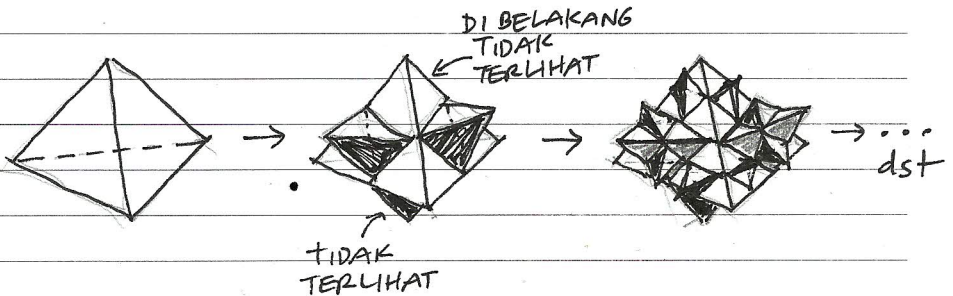 DI BELAKANG
TIDAK
TERLIHAT
...
dst
TIDAK
TERLIHAT